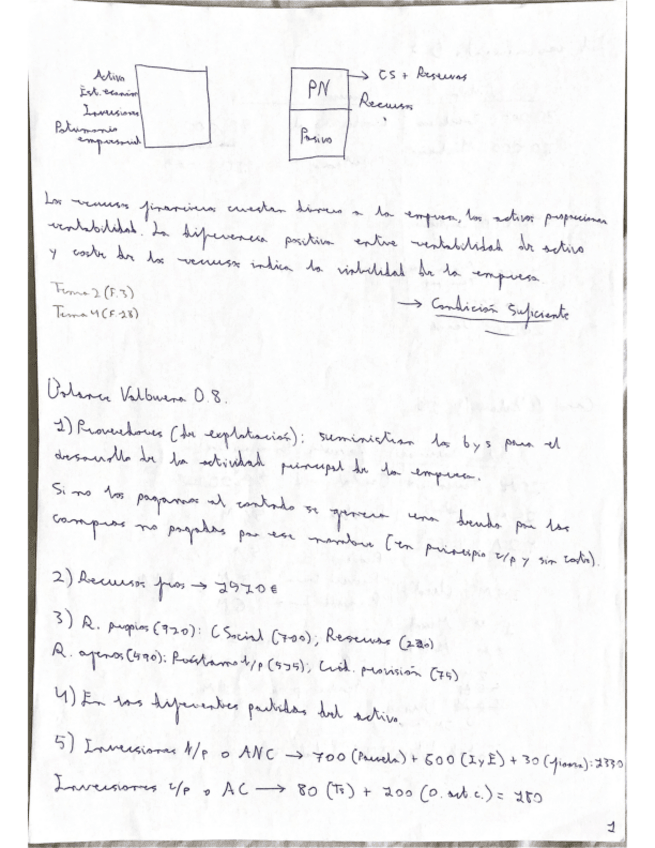 Activo
Est. económ
Inversiones
Patrimonio
empresarial
PN → CS + Reservas
Recursos
Pasivo
Los recursos financieros cuestan dinero a la empresa, los activos proporcionan
rentabilidad. La diferencia positiva entre rentabilidad de activo
y coste de los recursos indica la viabilidad de la empresa
→ Condición Suficiente
Tema 2 (F.3)
Tema 4 (F.28)
Balance Valbuena 0.8.
1) Proveedores (de explotación): suministran los b y s para el
desarrollo de la actividad principal de la empresa.
Si no los pagamos al contado se genera una deuda por las
compras no pagadas por ese nombre (en principio c/p y sin coste).
2) Recursos →
3) R. propios (920): C Social (700); Reservas
R. ajenos (490): Préstamo l/p Créd. provisión (75)
4) En las diferentes partidas del activo.
5) Inversiones l/p o ANC → 700 (Parcela) + 600 (I y E) + 30 (fianza): 1330
Inversiones c/p o AC → 80 (Ts) + 100 (O. act c.) = 180
1